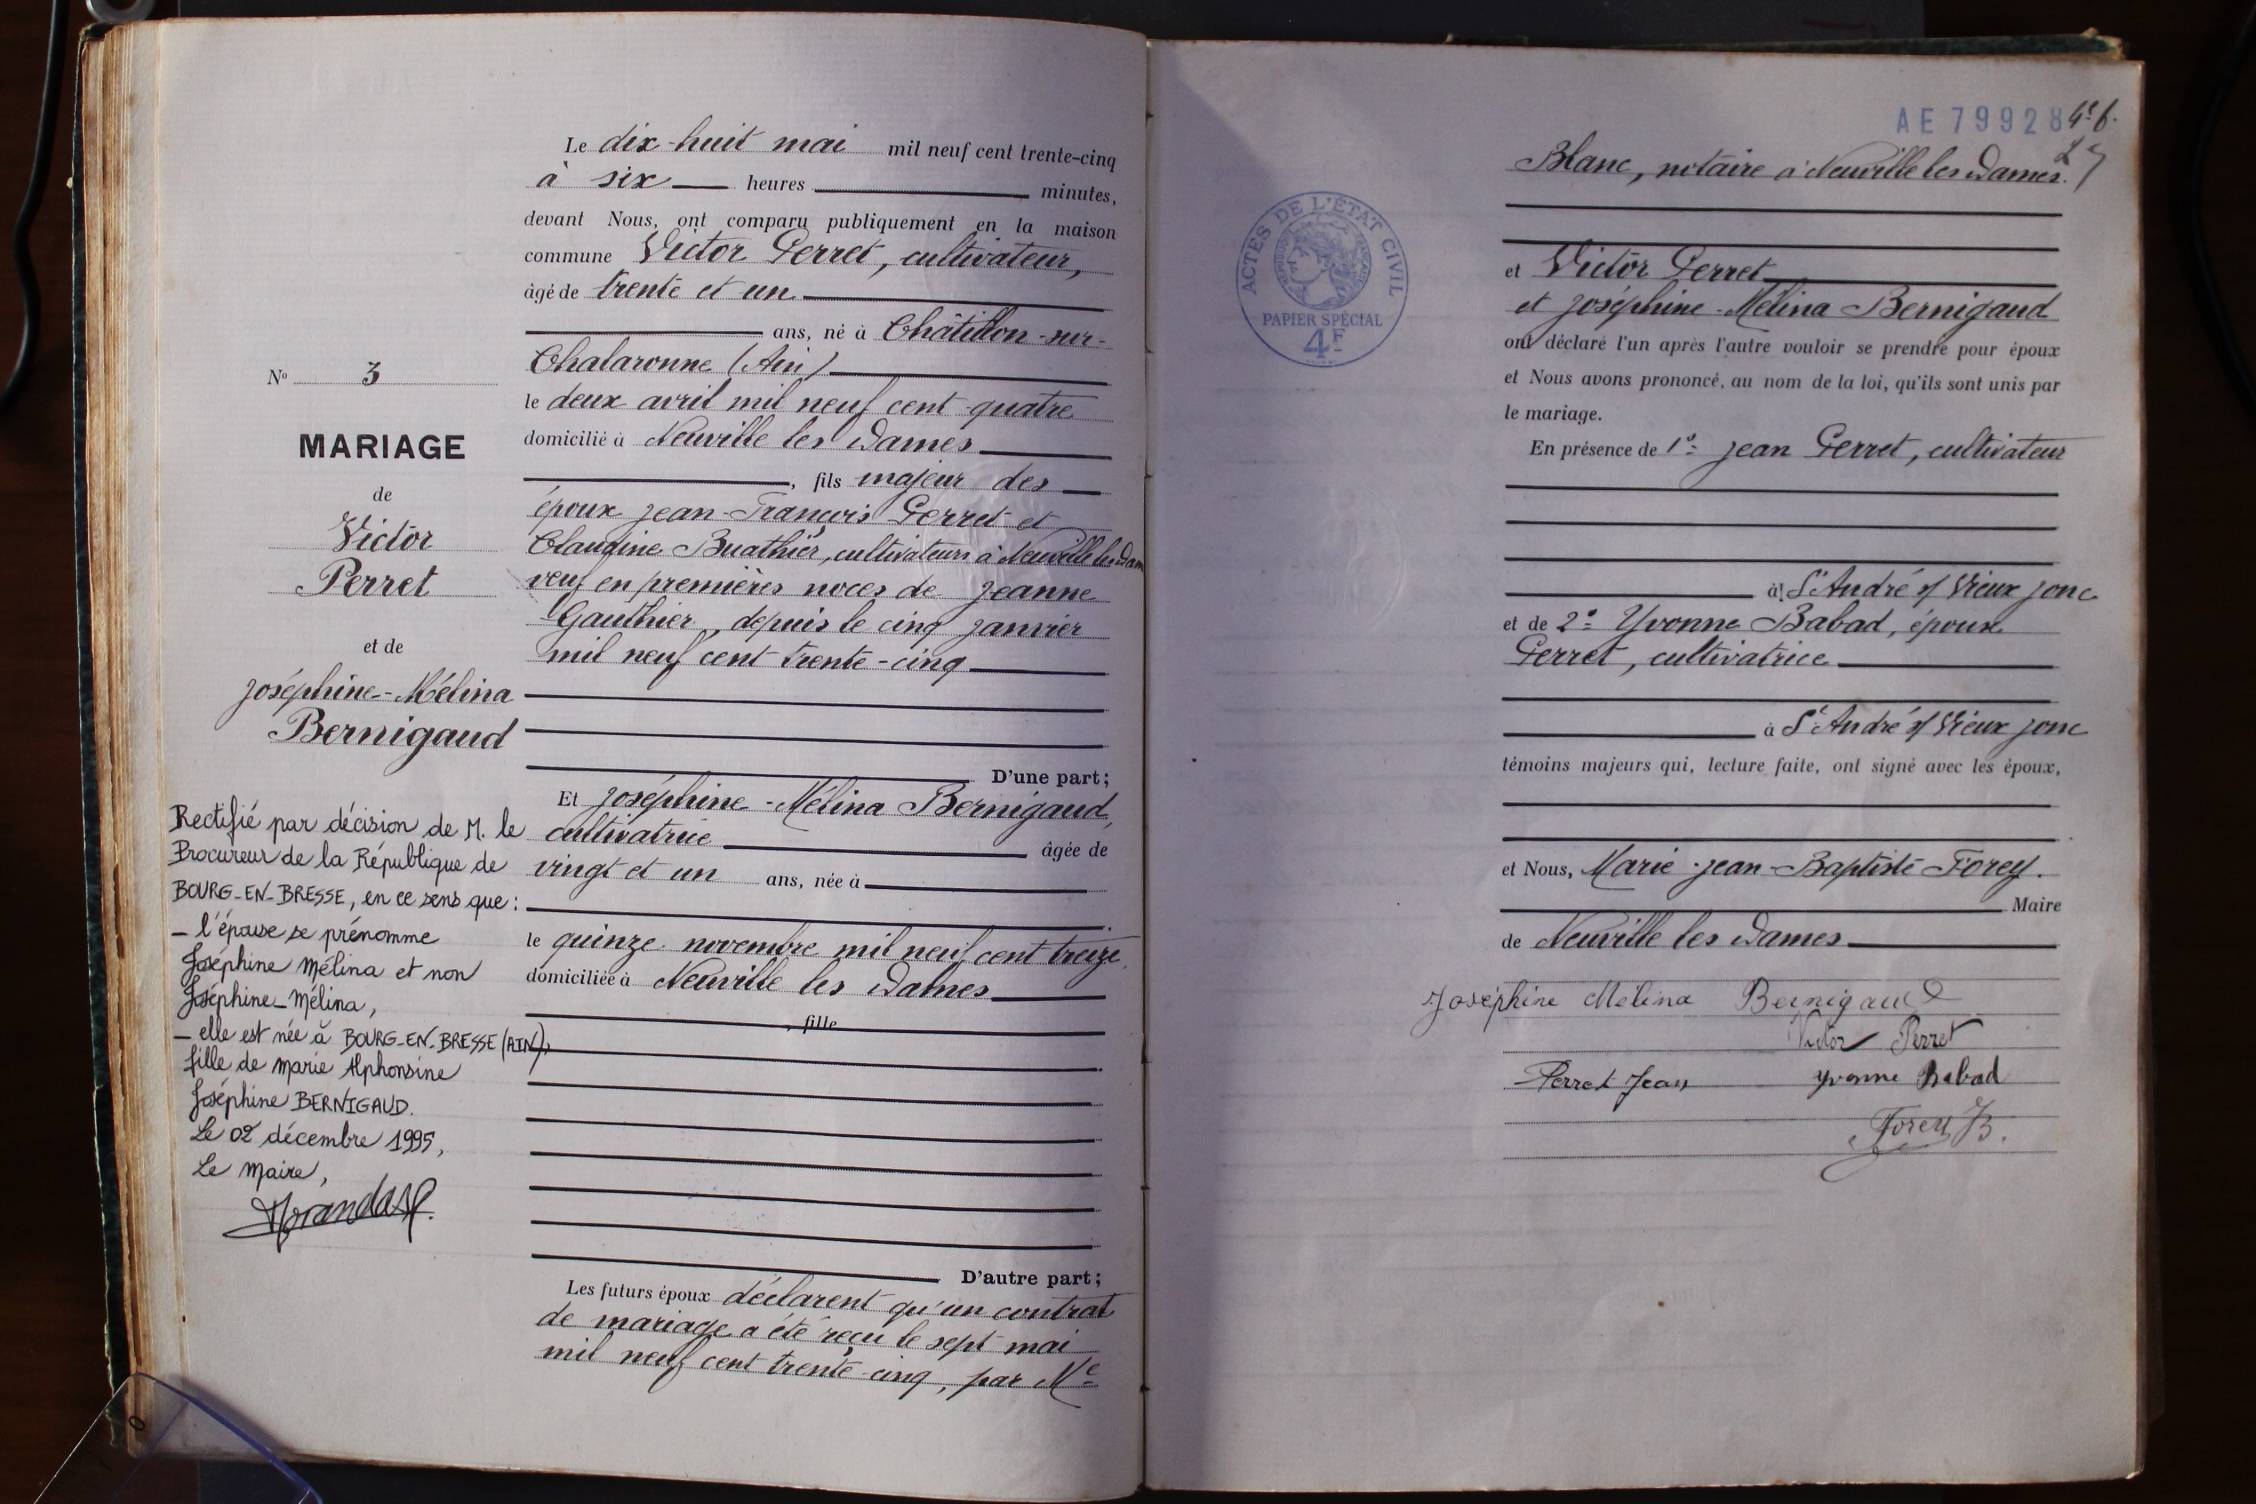 Le dix-huit mai mil neuf cent trente-cinq
à six heures minutes,
devant Nous, ont comparu publiquement en la maison
commune Victor Perret, cultivateur,
âgé de trente et un
ans, né à Châtillon-sur-
Chalaronne (Ain)
le deux avril mil neuf cent quatre
domicilié à Neuville les Dames
, fils majeur des
époux Jean-François Perret et
Claudine Buathier, cultivateurs à Neuville les Dam
veuf en premières noces de Jeanne
Gauthier, depuis le cinq janvier
mil neuf cent trente-cinq
D'une part;
Et Joséphine-Mélina Bernigaud,
cultivatrice âgée de
vingt et un ans, née à
le quinze novembre mil neuf cent treize
domiciliée à Neuville les Dames
, fille
D'autre part;
Les futurs époux déclarent qu'un contrat
de mariage a été reçu le sept mai
mil neuf cent trente-cinq, par Me
No 3
MARIAGE
de
Victor
Perret
et de
Joséphine-Mélina
Bernigaud
Rectifié par décision de M. le
Procureur de la République de
BOURG-EN-BRESSE, en ce sens que :
- l'épouse se prénomme
Joséphine Mélina et non
Joséphine-Mélina,
- elle est née à BOURG-EN-BRESSE (AIN),
fille de Marie Alphonsine
Joséphine BERNIGAUD.
Le 02 décembre 1995,
Le Maire,
AE 79928
ACTES DE L'ÉTAT CIVIL
PAPIER SPÉCIAL
4F
Blanc, notaire à Neuville les Dames.
et Victor Perret
et Joséphine-Mélina Bernigaud
ont déclaré l'un après l'autre vouloir se prendre pour époux
et Nous avons prononcé, au nom de la loi, qu'ils sont unis par
le mariage.
En présence de 1o Jean Perret, cultivateur
à St André s/ Vieux Jonc
et de 2o Yvonne Babad, épouse
Perret, cultivatrice
à St André s/ Vieux Jonc
témoins majeurs qui, lecture faite, ont signé avec les époux,
et Nous, Marie-Jean-Baptiste Forey.
Maire
de Neuville les Dames
Joséphine Mélina Bernigaud
Victor Perret
Perret Jean Yvonne Babad
Forey JB.